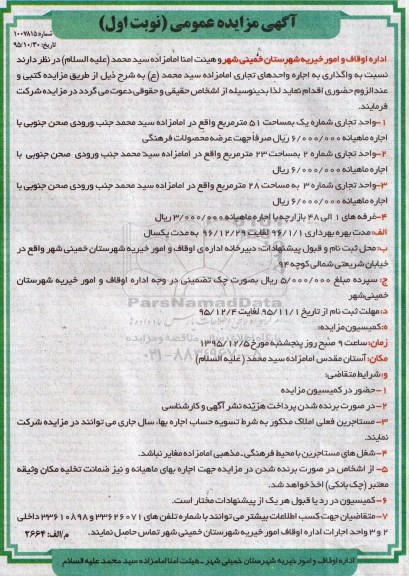 آگهی مزایده عمومی (نوبت اول)
شماره ۱۰۰۷۸۱۵
تاریخ: ۹۵/۱۰/۳۰
اداره اوقاف و امور خیریه شهرستان خمینی شهر و هیئت امنا امامزاده سید محمد (علیه السلام) در نظر دارند
نسبت به واگذاری به اجاره واحدهای تجاری امامزاده سید محمد (ع) به شرح ذیل از طریق مزایده کتبی و
عندالزوم حضوری اقدام نماید لذا بدینوسیله از اشخاص حقیقی و حقوقی دعوت می گردد در مزایده شرکت
فرمایند.
۱-واحد تجاری شماره یک بمساحت ۵۱ مترمربع واقع در امامزاده سید محمد جنب ورودی صحن جنوبی با
اجاره ماهیانه ۶/۰۰۰/۰۰۰ ریال صرفاً جهت عرضه محصولات فرهنگی
۲-واحد تجاری شماره ۲ بمساحت ۲۳ مترمربع واقع در امامزاده سید محمد جنب ورودی صحن جنوبی با
اجاره ماهیانه ۶/۰۰۰/۰۰۰ ریال
۳-واحد تجاری شماره ۳ به مساحت ۲۸ مترمربع واقع در امامزاده سید محمد جنب ورودی صحن جنوبی با
اجاره ماهیانه ۶/۰۰۰/۰۰۰ ریال
۴-غرفه های ۱ الی ۴۸ بازارچه با اجاره ماهیانه ۳/۰۰۰/۰۰۰ ریال
الف: مدت بهره بهرداری ۹۶/۱/۱ لغایت ۹۶/۱۲/۲۹ به مدت یکسال
ب: محل ثبت نام و قبول پیشنهادات: دبیرخانه اداره ی اوقاف و امور خیریه شهرستان خمینی شهر واقع در
خیابان شریعتی شمالی کوچه ۹۴
ج: سپرده مبلغ ۵/۰۰۰/۰۰۰ ریال بصورت چک تضمینی در وجه اداره اوقاف و امور خیریه شهرستان
خمینی شهر
د: مهلت ثبت نام از تاریخ ۹۵/۱۱/۱ لغایت ۹۵/۱۲/۴
ه: کمیسیون مزایده:
زمان: ساعت ۹ صبح روز پنجشنبه مورخ ۱۳۹۵/۱۲/۵
مکان: آستان مقدس امامزاده سید محمد (علیه السلام)
و: شرایط متقاضی:
۱-حضور در کمیسیون مزایده
۲-در صورت برنده شدن پرداخت هزینه نشر آگهی و کارشناسی
۳-مستاجرین فعلی املاک مذکور به شرط تسویه حساب اجاره بها، سال جاری می توانند در مزایده شرکت
نمایند.
۴-شغل های مستاجرین با محیط فرهنگی-مذهبی امامزاده مغایر نباشد.
۵-از اشخاص در صورت برنده شدن در مزایده جهت اجاره بهای ماهیانه و نیز ضمانت تخلیه مکان وثیقه
معتبر (چک بانکی) اخذ خواهد شد.
۶-کمیسیون در رد یا قبول هر یک از پیشنهادات مختار است.
۷-متقاضیان جهت کسب اطلاعات بیشتر می توانند با شماره تلفن های ۳۳۶۲۶۰۷۱ و ۳۳۶۱۰۸۹۸ داخلی
۲ و ۳ واحد اجارات اداره اوقاف امور خیریه شهرستان خمینی شهر تماس حاصل نمایند.
م/الف: ۲۶۶۴
اداره اوقاف و امور خیریه شهرستان خمینی شهر - هیئت امنا امامزاده سید محمد علیه السلام
ParsNamadData